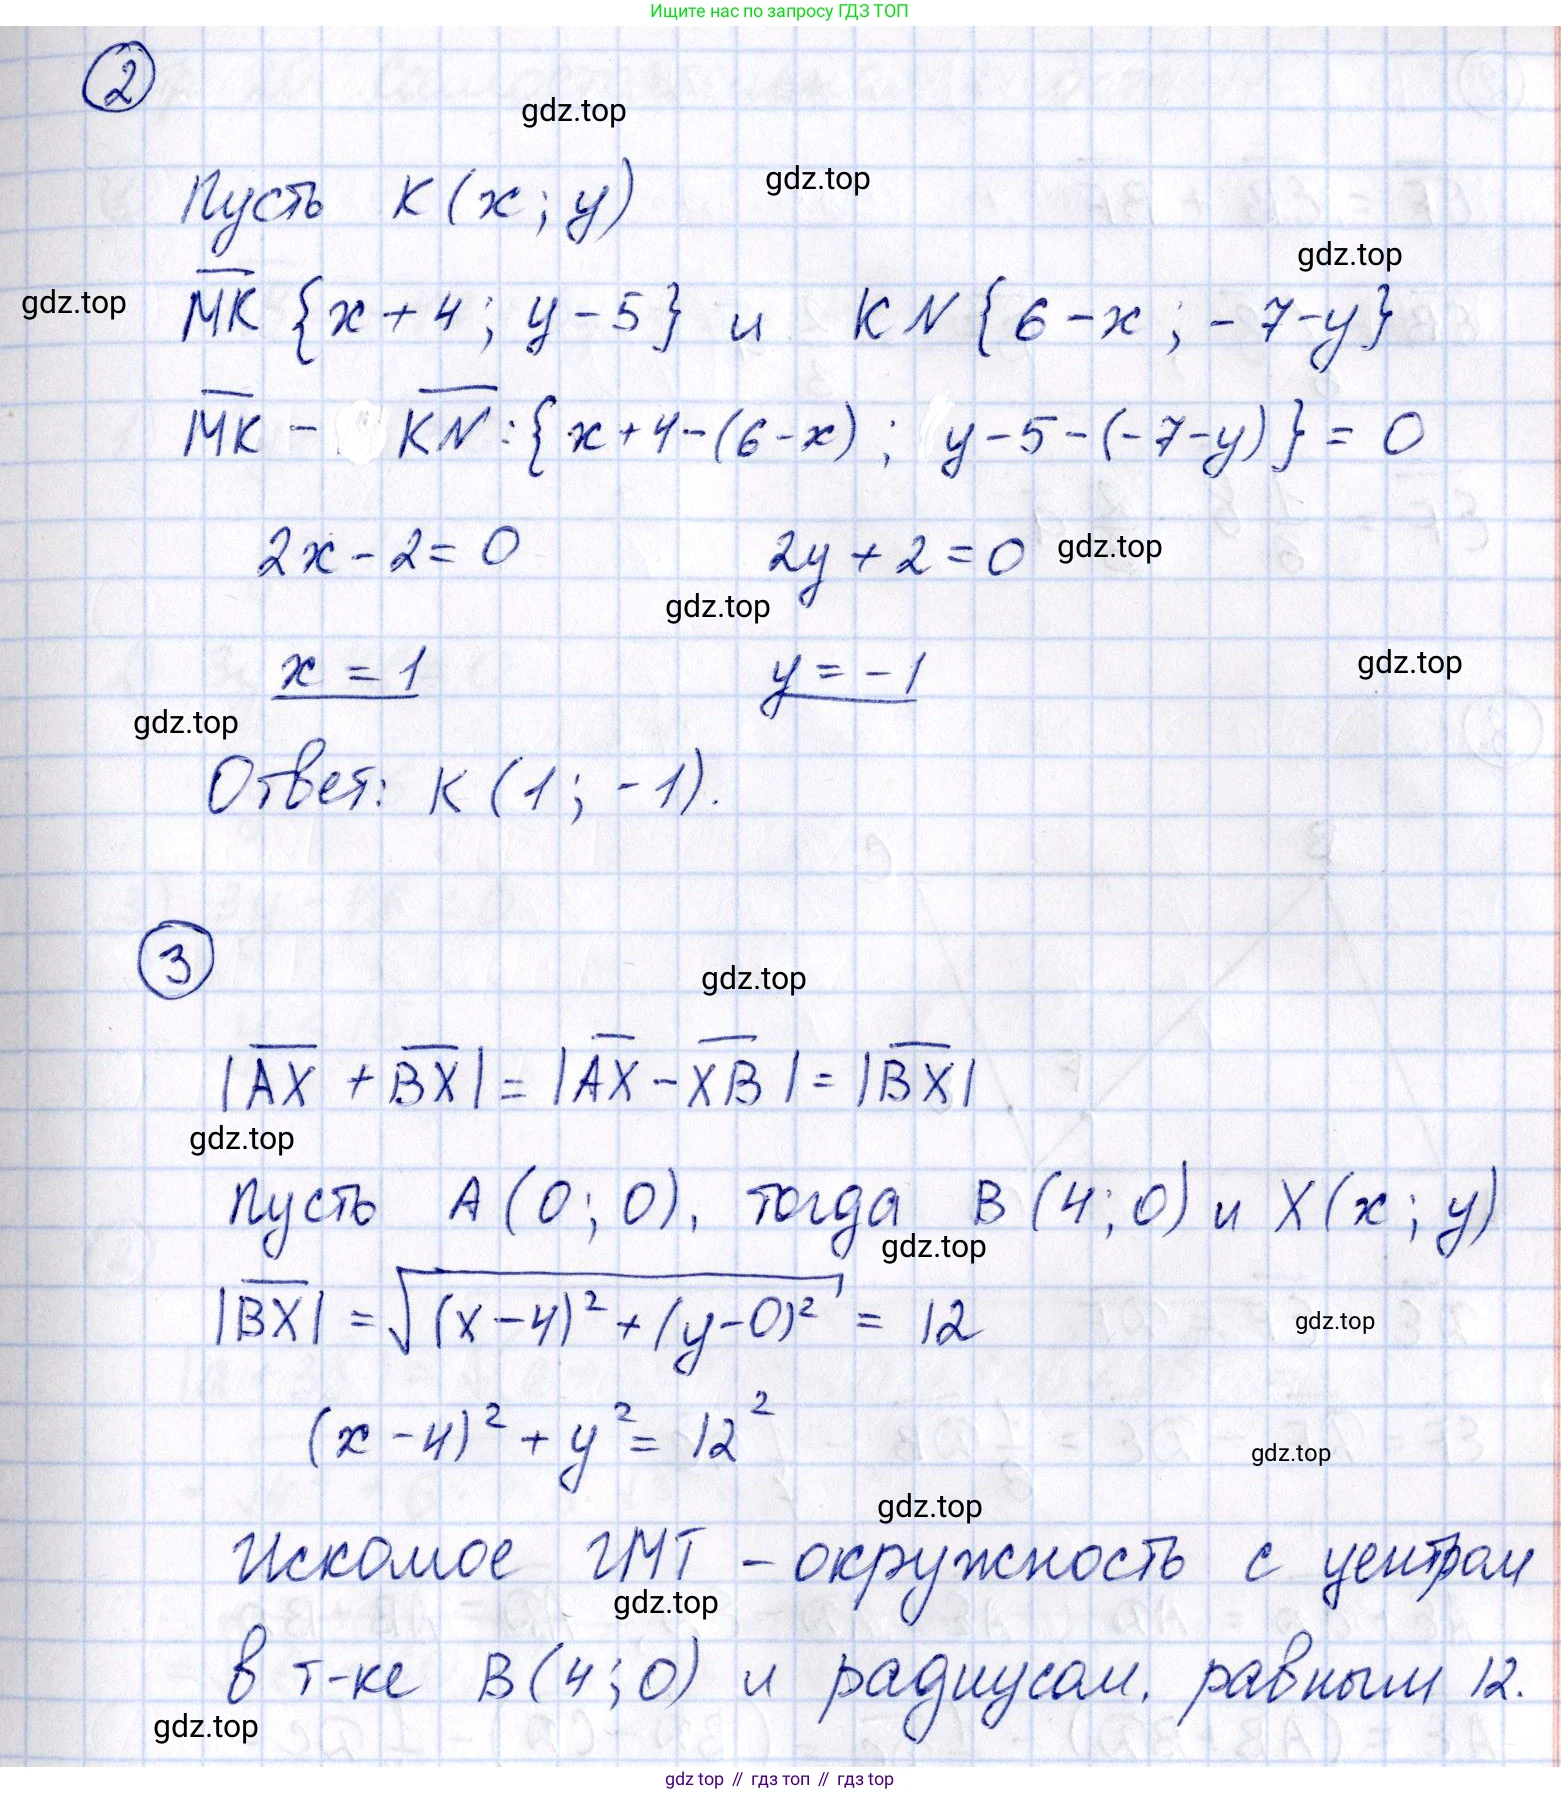 Ищите нас по запросу ГДЗ ТОП
2
gdz.top
Пусть K(x; y)
gdz.top
gdz.top
gdz.top
MK {x+4; y-5} и KN{6-x; -7-y}
MK - KN: {x+4-(6-x); y-5-(-7-y)} = 0
2x-2=0 2y+2=0
gdz.top
gdz.top
x = 1 y = -1
gdz.top
gdz.top
Ответ: K(1; -1).
3
gdz.top
|AX + BX| = |AX - XB| = |BX|
gdz.top
Пусть A(0; 0), тогда B(4; 0) и X(x; y)
gdz.top
|BX| = √(x-4)² + (y-0)² = 12
gdz.top
(x-4)² + y² = 12²
gdz.top
gdz.top
Искомое ГМТ - окружность с центром
gdz.top
в т-ке B(4; 0) и радиусом, равным 12.
gdz.top
gdz top // гдз топ // гдз top